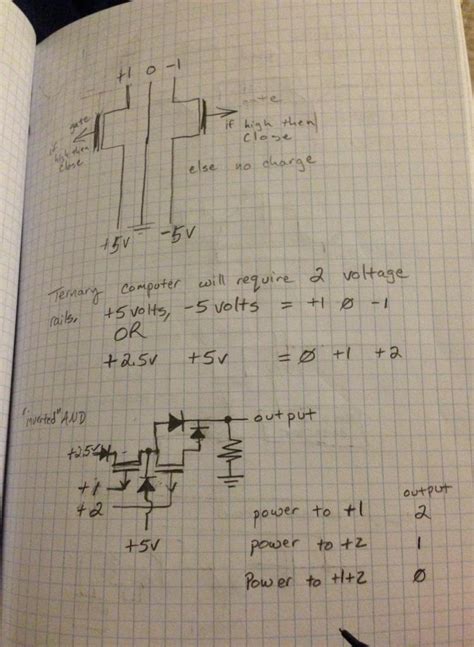 +1 0 -1
gate
if high then close
gate
if high then close
else no charge
+5v -5v
Ternary computer will require 2 voltage
rails. +5 volts, -5 volts = +1 Ø -1
OR
+2.5v +5v = Ø +1 +2
"inverted" AND
output
+2.5v
+1
+2
+5v
output
power to +1 2
power to +2 1
Power to +1+2 Ø